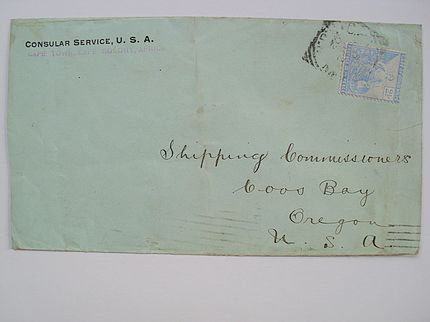 CONSULAR SERVICE, U. S. A.
CAPE TOWN, CAPE COLONY, AFRICA
Shipping Commissioners
Coos Bay
Oregon
U. S. A.